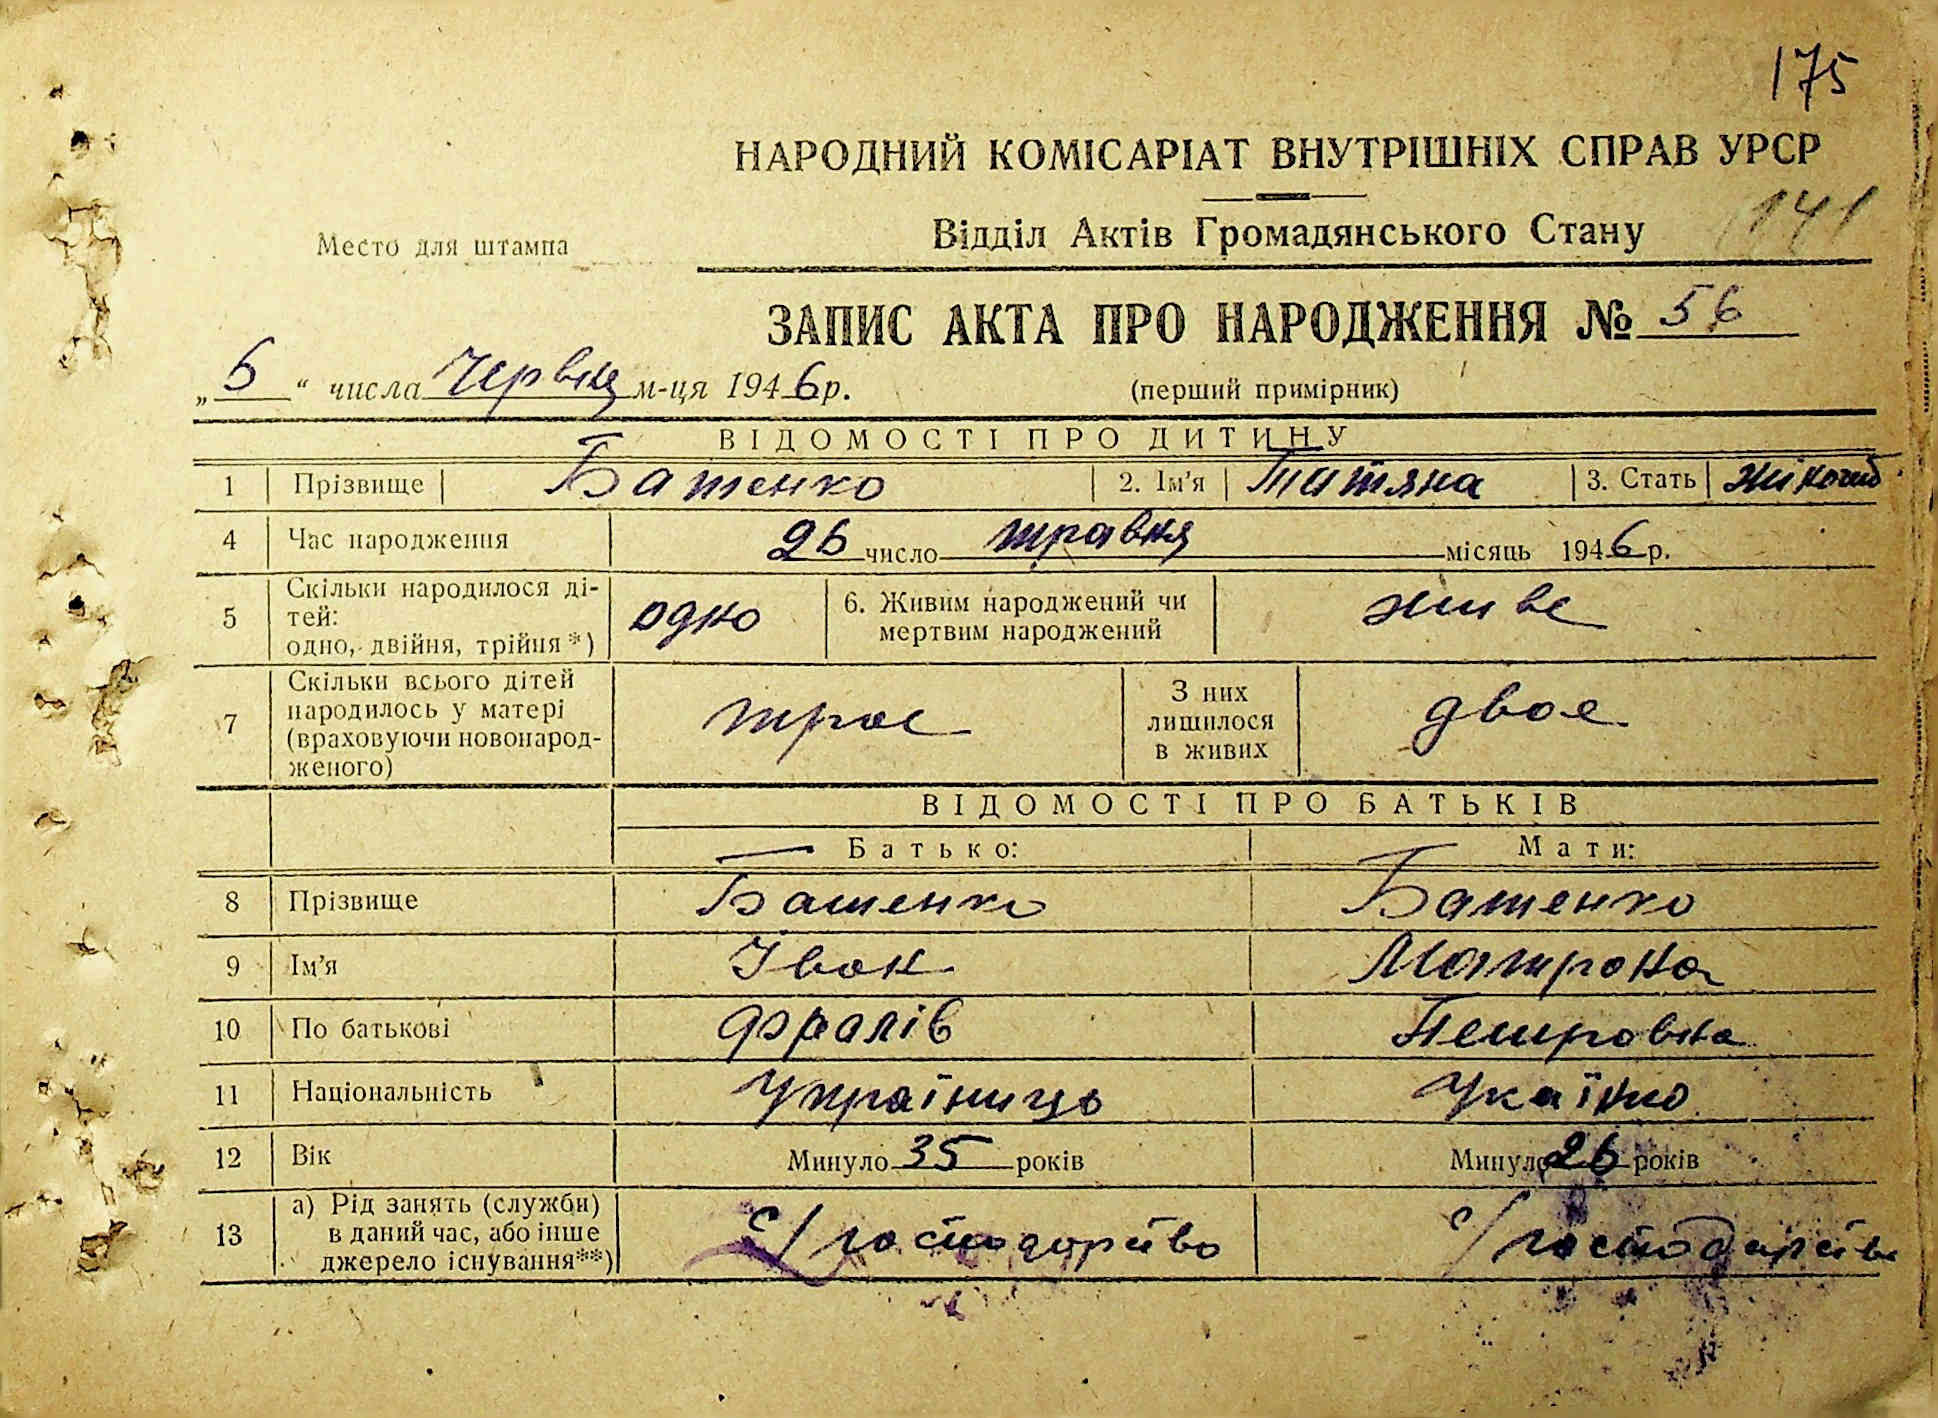 175
НАРОДНИЙ КОМІСАРІАТ ВНУТРІШНІХ СПРАВ УРСР
Место для штампа
Відділ Актів Громадянського Стану 141
ЗАПИС АКТА ПРО НАРОДЖЕННЯ № 56
„ 5 “ числа Червня м-ця 1946 р. (перший примірник)
ВІДОМОСТІ ПРО ДИТИНУ
1 Прізвище Батенко 2. Ім'я Татяна 3. Стать
4 Час народження 26 число травня місяць 1946 р.
5 Скільки народилося ді-
тей:
одно, двійня, трійня *) одно 6. Живим народжений чи
мертвим народжений живе
7 Скільки всього дітей
народилось у матері
(враховуючи новонарод-
женого) троє З них
лишилося
в живих двоє
ВІДОМОСТІ ПРО БАТЬКІВ
Батько: Мати:
8 Прізвище Батенко Батенко
9 Ім'я Іван Матрона
10 По батькові Фралів Петровна
11 Національність Україниць Укаїнко
12 Вік Минуло 35 років Минуло 26 років
13 а) Рід занять (служби)
в даний час, або інше
джерело існування**) с/господарство с/господарств